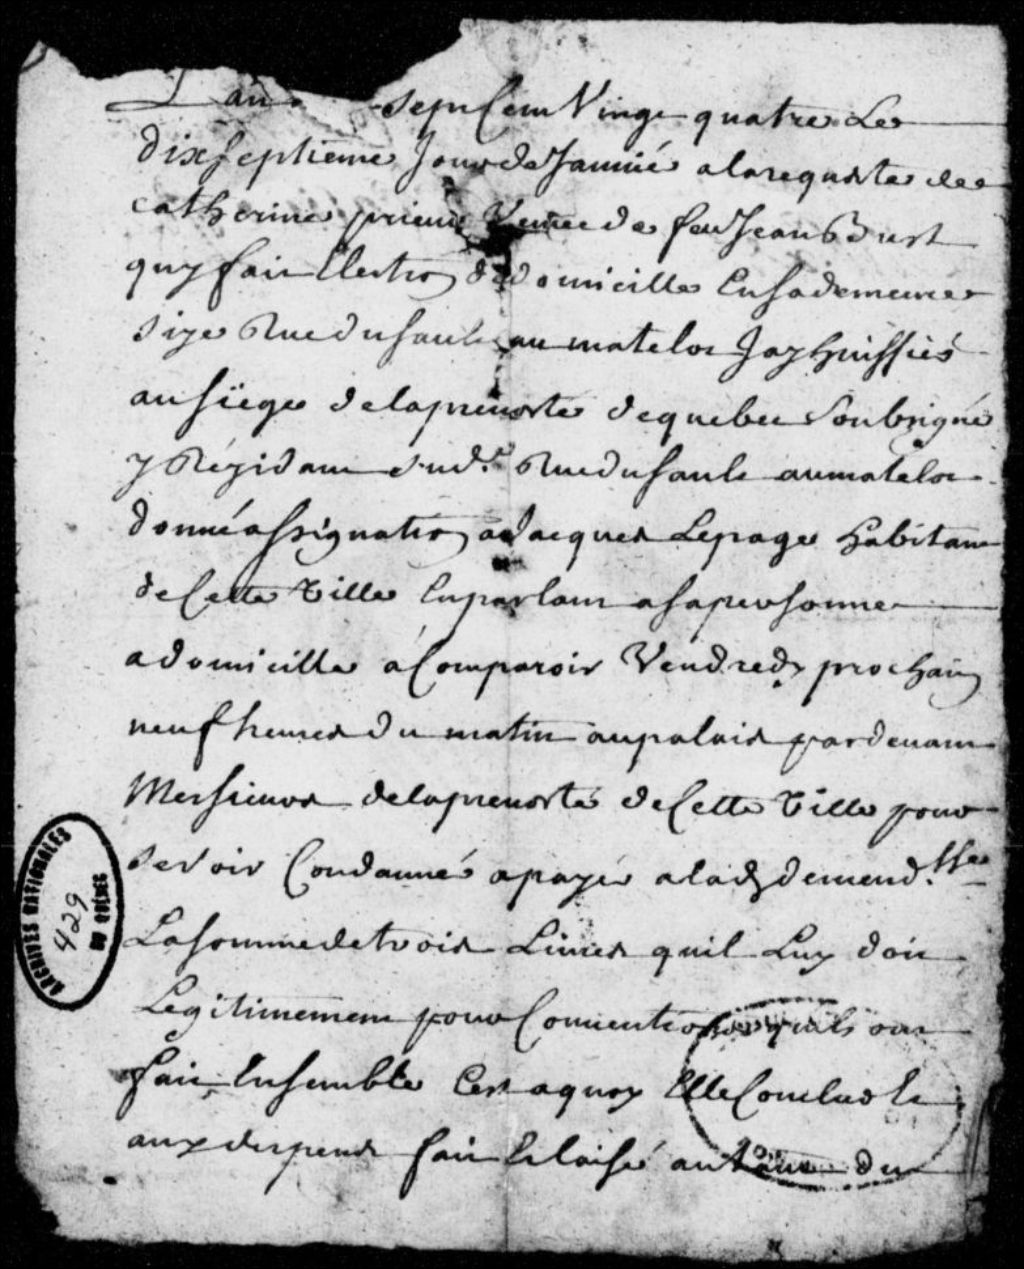 L an sept Cent Vingt quatre Le
dixseptieme Jour de Janvié a la requeste de
catherine prieur Veuve de feu Jean Burt
quy fait Election de domicille En sa demeure
size Rue du sault au matelot Jay huissiés
au siëge de la prevosté de quebec Soubsigné
y Rézidant sud.e Rue du sault au matelot
donné assignation a Jacques Lepage habitant
de Cette Ville En parlant a sa personne
a domicille à Comparoir Vendredy prochain
neuf heures du matin au palais pardevant
Messieurs de la prevosté de Cette Ville pour
se voir Condamné a payé a lad. demend.sse
La somme de trois Livres quil Luy doit
Legitimement pour Convention quils ont
fait Ensemble Cest a quoy Elle Conclud Et
aux despends fait Et laisé autant du
ARCHIVES NATIONALES
429
DU QUÉBEC